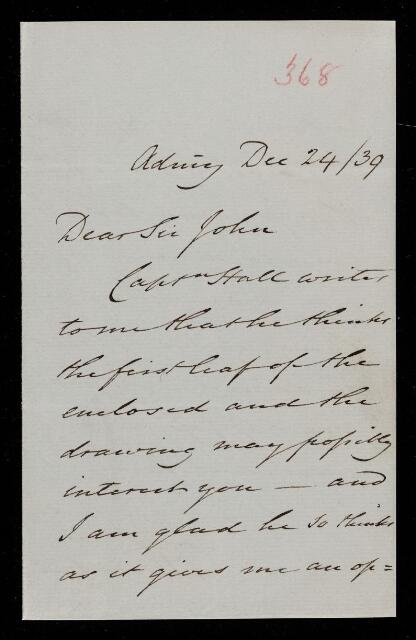 368
Admty Dec 24/39
Dear Sir John
Captn Hall writes
to me that he thinks
the first leaf of the
enclosed and the
drawing may possibly
interest you — and
I am glad he so thinks
as it gives me an op=